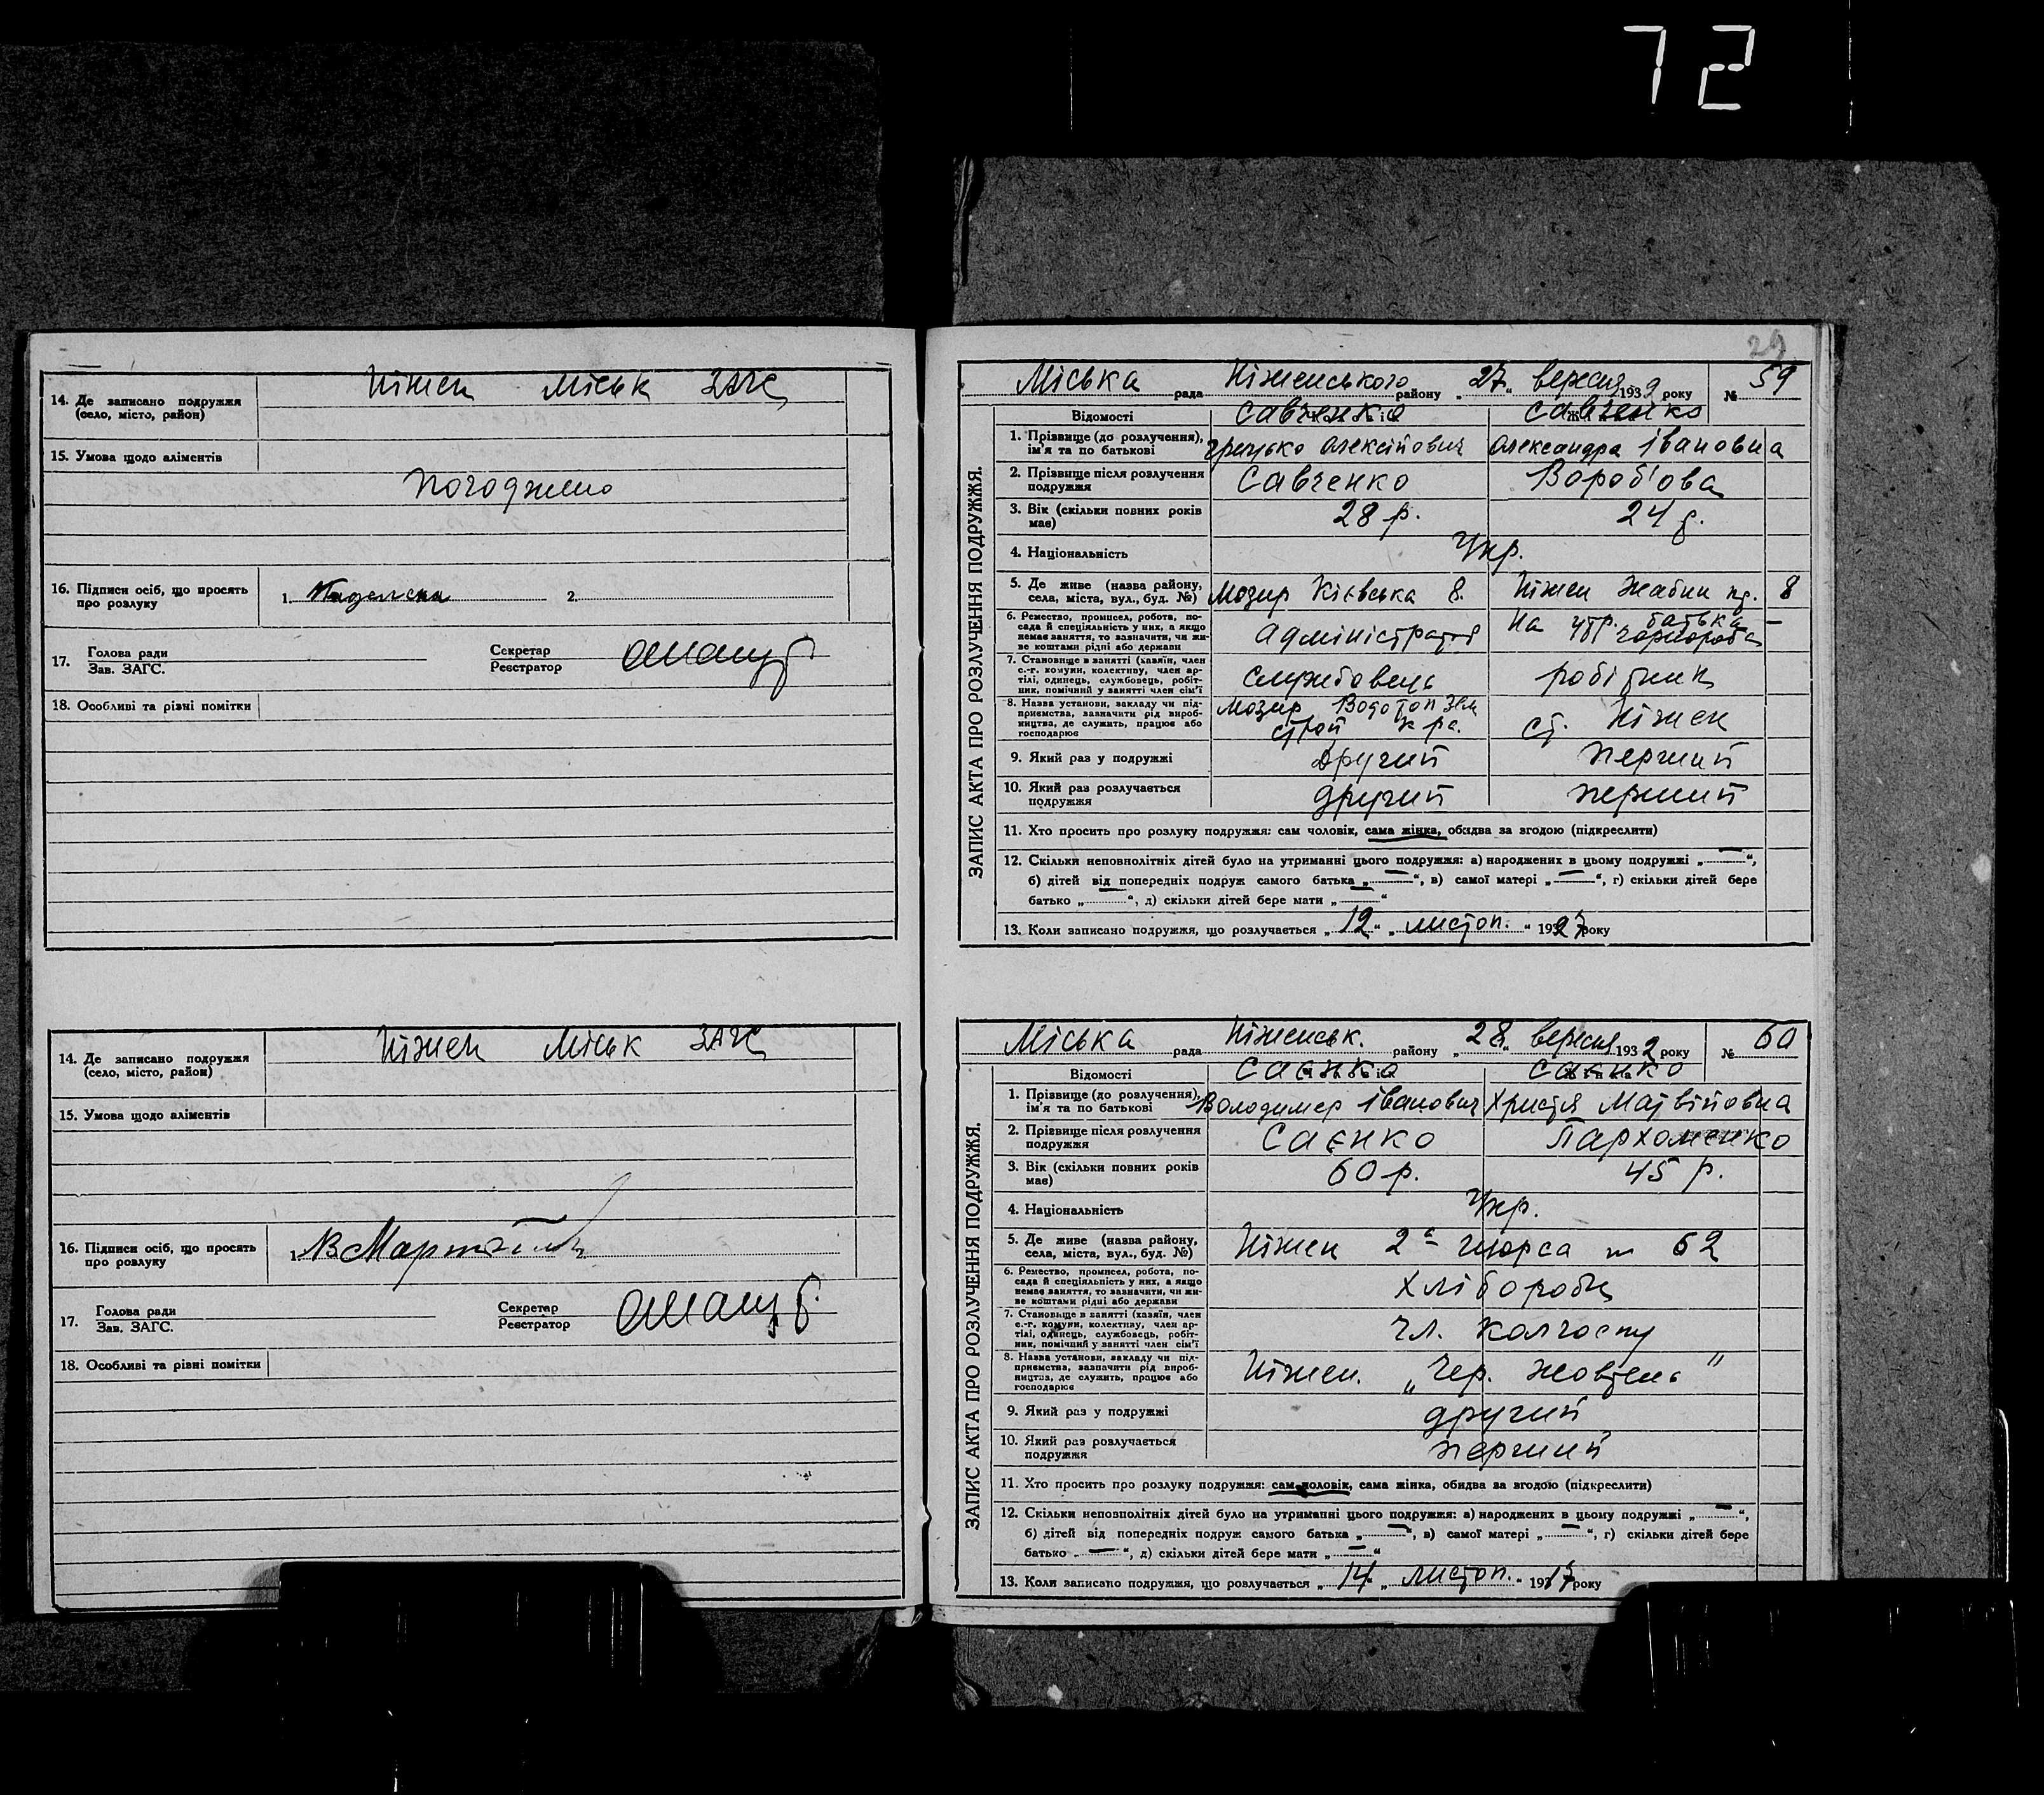 72
14. Де записано подружжя (село, місто, район)
Ніжен міськ ЗАГС
15. Умова щодо аліментів
Погоджено
16. Підписи осіб, що просять про розлуку
1. 2.
17. Голова ради
Зав. ЗАГС.
Секретар
Реєстратор
18. Особливі та різні помітки
14. Де записано подружжя (село, місто, район)
Ніжен Міськ ЗАГС
15. Умова щодо аліментів
16. Підписи осіб, що просять про розлуку
1.
17. Голова ради
Зав. ЗАГС.
Секретар
Реєстратор
18. Особливі та різні помітки
29
ЗАПИС АКТА ПРО РОЗЛУЧЕННЯ ПОДРУЖЖЯ.
Міська рада Ніженського району „27“ вересня 1932 року № 59
Відомості Савченко Савченко
1. Прізвище (до розлучення), ім'я та по батькові Грицько Олексійович Олександра Івановна
2. Прізвище після розлучення подружжя Савченко Вороб'йова
3. Вік (скільки повних років має) 28 р. 24 р.
4. Національність Укр.
5. Де живе (назва району, села, міста, вул., буд. №) Мозир Кієвська 8. Ніжен Жабин 8
6. Ремество, промисел, робота, посада й спеціяльність у них, а якщо немає заняття, то зазначити, чи живе коштами рідні або держави Адміністратор На утр. батька чорнороба
7. Становище в занятті (хазяїн, член с.-г. комуни, колективу, член артілі, одинець, службовець, робітник, помічний у занятті член сім'ї Службовець робітник
8. Назва установи, закладу чи підприємства, зазначити рід виробництва, де служить, працює або господарює Мозир строй ст. Ніжен
9. Який раз у подружжі другий перший
10. Який раз розлучається подружжя другий перший
11. Хто просить про розлуку подружжя: сам чоловік, сама жінка, обидва за згодою (підкреслити)
12. Скільки неповнолітніх дітей було на утриманні цього подружжя: а) народжених в цьому подружжі „—“,
б) дітей від попередніх подруж самого батька „—“, в) самої матері „—“, г) скільки дітей бере
батько „—“, д) скільки дітей бере мати „—“
13. Коли записано подружжя, що розлучається „12“ „листоп.“ 1927 року
ЗАПИС АКТА ПРО РОЗЛУЧЕННЯ ПОДРУЖЖЯ.
Міська рада Ніженськ. району „28“ вересня 1932 року № 60
Відомості Саєнко Саєнко
1. Прізвище (до розлучення), ім'я та по батькові Володимер Іванович Христя Матвійовна
2. Прізвище після розлучення подружжя Саєнко Пархоменко
3. Вік (скільки повних років має) 60 р. 45 р.
4. Національність Укр.
5. Де живе (назва району, села, міста, вул., буд. №) Ніжен 2а Шорса 62
6. Ремество, промисел, робота, посада й спеціяльність у них, а якщо немає заняття, то зазначити, чи живе коштами рідні або держави Хлібороби
7. Становище в занятті (хазяїн, член с.-г. комуни, колективу, член артілі, одинець, службовець, робітник, помічний у занятті член сім'ї чл. колгоспу
8. Назва установи, закладу чи підприємства, зазначити рід виробництва, де служить, працює або господарює Ніжен. „Чер. Жовтень“
9. Який раз у подружжі другий
10. Який раз розлучається подружжя перший
11. Хто просить про розлуку подружжя: сам чоловік, сама жінка, обидва за згодою (підкреслити)
12. Скільки неповнолітніх дітей було на утриманні цього подружжя: а) народжених в цьому подружжі „—“,
б) дітей від попередніх подруж самого батька „—“, в) самої матері „—“, г) скільки дітей бере
батько „—“, д) скільки дітей бере мати „—“
13. Коли записано подружжя, що розлучається „14“ „листоп.“ 1917 року